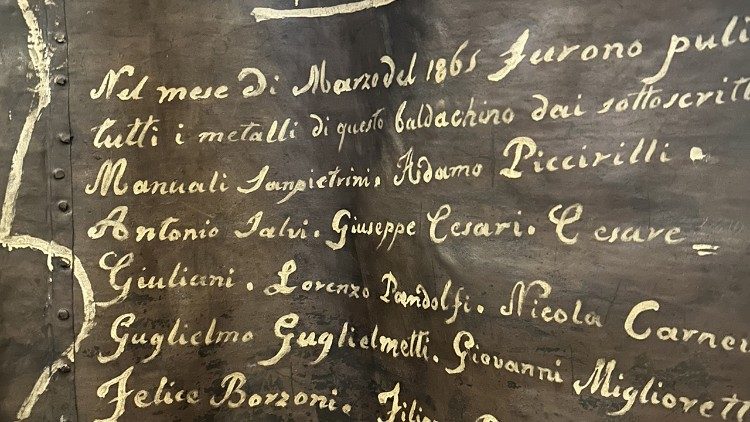 Nel mese di Marzo del 1865 furono puli
tutti i metalli di questo baldachino dai sottoscritt
Manuali Sanpietrini. Adamo Piccirilli.
Antonio Salvi. Giuseppe Cesari. Cesare =
Giuliani. Lorenzo Pandolfi. Nicola Carnev
Guglielmo Guglielmetti. Giovanni Migliorett
Felice Borzoni. Filip